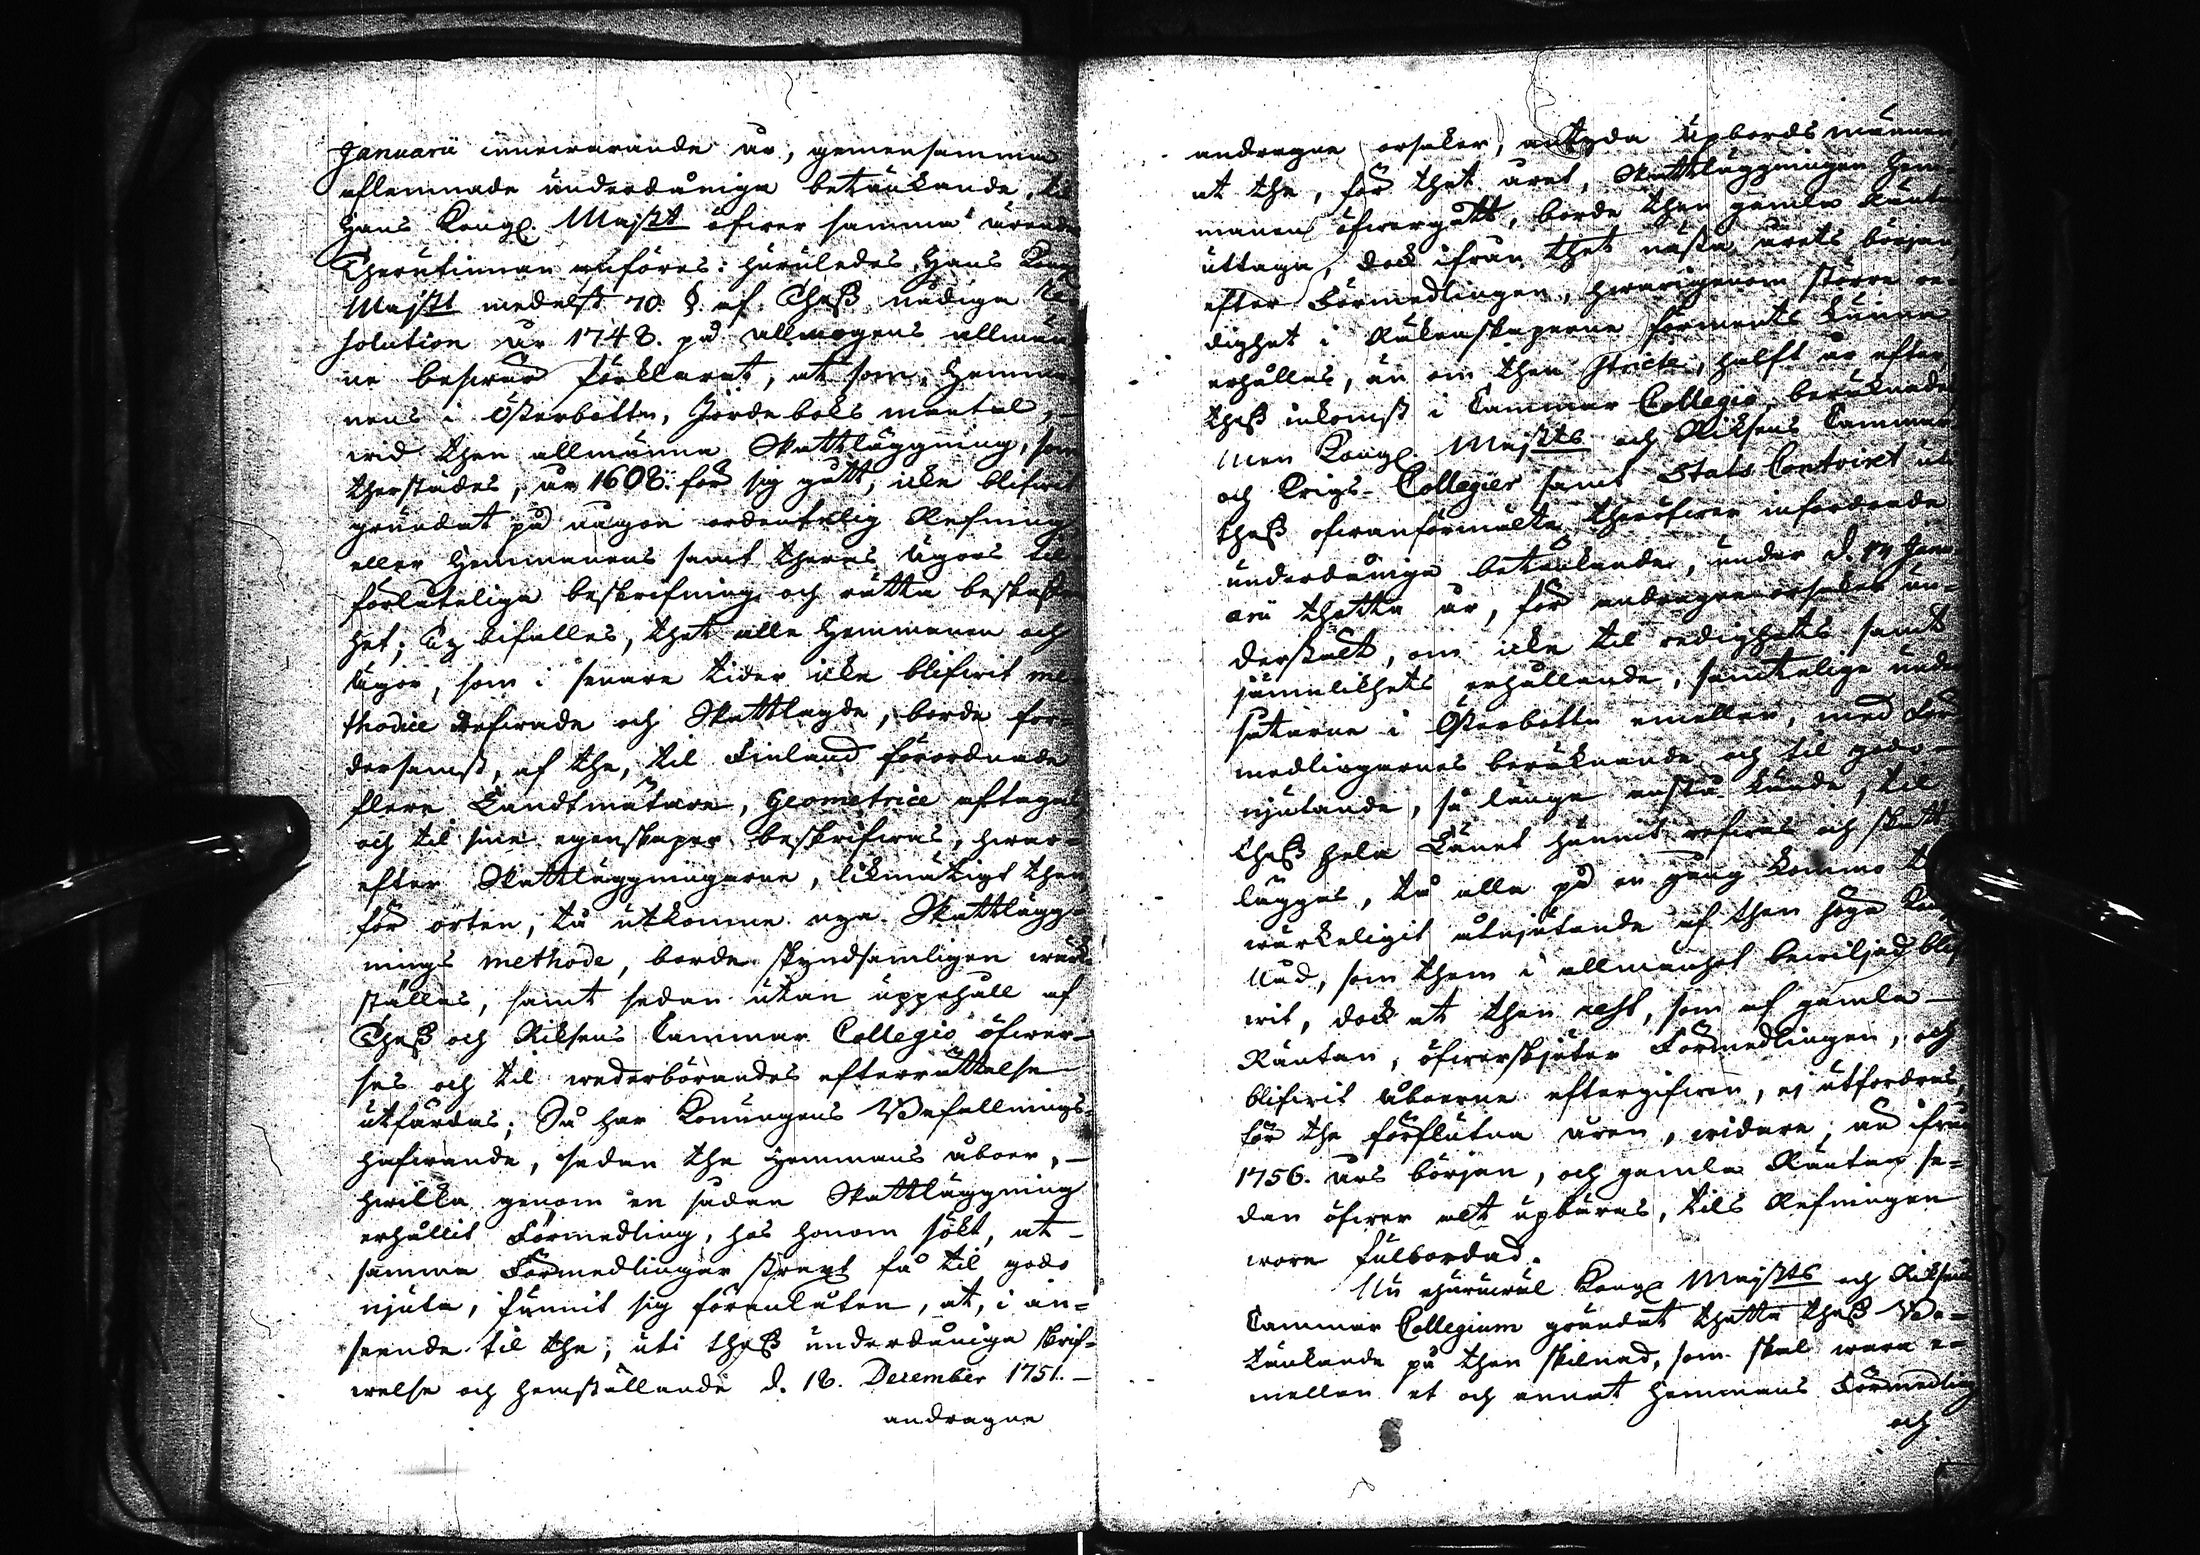 Januarii innewarande år, gemensamma
aflemnade underdåniga betänkande, til
Hans Kongl. Majst öfwer samma ärende
Therutinnan anföres: huruledes Hans Kongl.
Majst medelst 70. §. af Thess nådiga Re-
solution år 1748. på allmogens allmän-
ne beswär förklarat, at som Hemma-
nens i Österbotten, Jordeboks mantal,
wid then allmänna Skattläggning, som
therstädes, år 1608. för sig gått, icke blifwit
grundat på någon ordentelig Refning
eller Hemmanens samt theras ägors til-
förlåtelige beskrifning och rätta beskaffen-
het; Ty bifalles, thet alla Hemmanen och
ägor, som i senare tider icke blifwit me-
thodice refwade och Skattlagde, borde for-
dersamst, af the, til Finland förordnade
flere Landtmätare, Geometrice aftagas
och til sine egenskaper beskrifwas, hwar-
efter Skattläggningarne, likmätigt then
för orten, tå utkomne nya Skattlägg-
nings methode, borde skyndsamligen wärk-
ställas, samt sedan utan uppehåll af
Thess och Riksens Cammar Collegio öfwer-
ses och til wederbörandes efterrättelse
utfärdas; Så har Konungens Befallnings-
hafwande, sedan the Hemmans åboer,
hwilka genom en sådan Skattläggning
erhållit Förmedling, hos honom sökt, at
samma Förmedlingar straxt få til godo
njuta, funnit sig föranlåten, at, i an-
seende til the, uti thess underdåniga skrif-
welse och hemställande d. 18. December 1751.
andragne
andragne orsaker, antyda Upbördsmännen,
at the, för thet året, Skattläggningen Hem-
manen öfwergått, borde then gamla Räntan
uttaga, dock ifrån thet nästa årets början
efter Förmedlingen, hwarigenom större re-
dighet i Räkenskaperne förments kunna
erhållas, än om then stricte, halft år efter
thess inkomst i Cammar Collegio, beräknades
Men Kongl. Majsts och Riksens Cammar
och Krigs-Collegier samt Stats Contoiret uti
thess ofwanförmälte, theröfwer infordrade
underdåniga betänkande, under d. 14 Janu-
arii thetta år, för andragne orsaker un-
derstält, om icke til redighets samt
jämnlikhets erhållande, samtelige under-
såtarne i Österbotten emellan, med För-
medlingarnes beräknande och til godo-
njutande, så länge anstå kunde, til
thess hela Länet hunnit refwas och skatt-
läggas, tå alla på en gång komme
wärkeligit åtnjutande af then höga Kongl.
Nåd, som them i allmänhet bewiljad blif-
wit, dock at then rest, som af gamla
Räntan, öfwerskjuter Förmedlingen, och
blifwit åboerne eftergifwen, ej utfordras,
för the förflutna åren, widare, än ifrån
1756. års början, och gamla Räntan se-
dan öfwer alt upbäras, tils Refningen
wore fulbordad.
Nu ehuruwäl Kongl Majsts och Riksens
Cammar Collegium grundat thetta thess Be-
tänkande på then skilnad, som skal wara e-
mellan et och annat Hemmans Förmedling
och